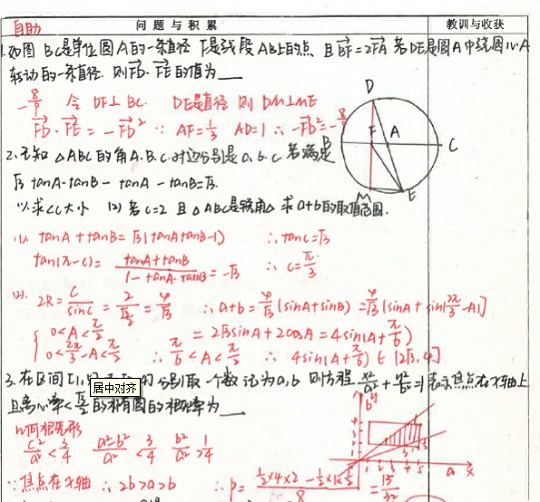 自助
问题与积累
教训与收获
1.如图 BC是单位圆A的一条直径 F是线段AB上的点 且BF=2FA 若DE是圆A中绕圆心A
转动的一条直径 则FD·FE的值为___
-8/9 令DF⊥BC. DE是直径 则DM⊥ME
FD·FE=-FD² ∵AF=1/3 AD=1 ∴-FD²=-8/9
D
F
A
C
M
E
2.已知△ABC的角A.B.C.对边分别是a.b.c 若满足
√3 tanA·tanB-tanA-tanB=√3.
(1)求∠C大小 (2)若c=2 且△ABC是锐角△ 求a+b的取值范围.
(1) tanA+tanB=√3(tanAtanB-1) ∴tanC=√3
tan(π-C)=(tanA+tanB)/(1-tanA·tanB)=-√3 ∴C=π/3
(2). 2R=c/sinC=2/(√3/2)=4/√3 ∴a+b=4/√3(sinA+sinB)=4/√3[sinA+sin(2π/3-A)]
{0<A<π/2 =2√3sinA+2cosA=4sin(A+π/6)
0<2π/3-A<π/2 ∴π/6<A<π/2 ∴4sin(A+π/6)∈(2√3,4]
3.在区间[1,5] 分别取一个数记为a,b 则方程x²/a²+y²/b²=1表示焦点在x轴上
居中对齐
且离心率<√3/2的椭圆的概率为___
几何概型
c²/a²<3/4 (a²-b²)/a²<3/4 b²/a²>1/4
∵焦点在x轴 ∴2b>a>b ∴P= =15/32
b
a
x